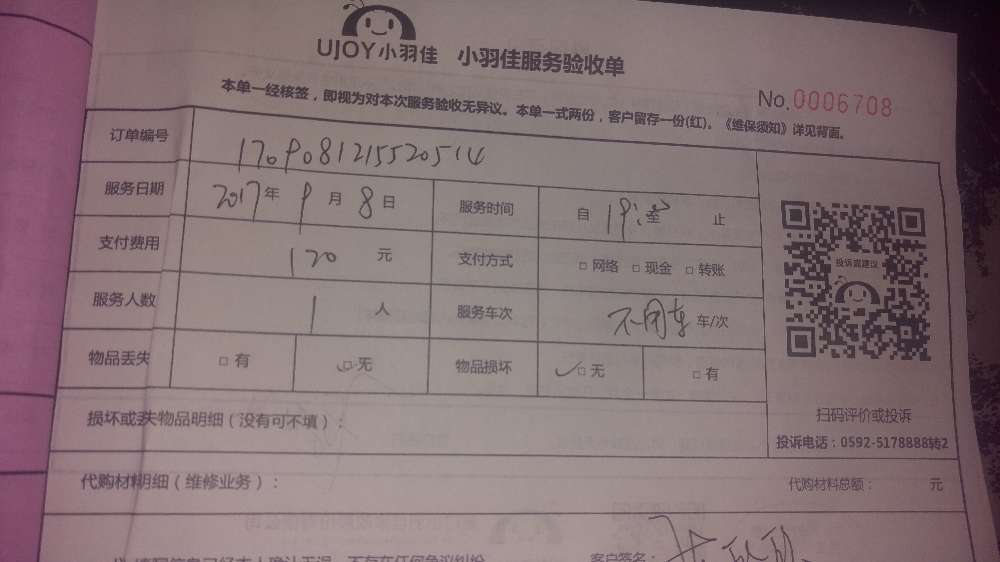 UJOY小羽佳 小羽佳服务验收单
本单一经核签，即视为对本次服务验收无异议。本单一式两份，客户留存一份(红)。《维保须知》详见背面。
No.0006708
订单编号 1709081215520514
服务日期 2017年9月8日 服务时间 自 止
支付费用 120 元 支付方式 □ 网络 □ 现金 □ 转账
服务人数 1 人 服务车次 不用车 车/次
物品丢失 □ 有 ✓□ 无 物品损坏 ✓□ 无 □ 有
投诉或建议
扫码评价或投诉
投诉电话：0592-5178888转2
损坏或丢失物品明细（没有可不填）：
代购材料明细（维修业务）：
代购材料总额： 元
客户签名：